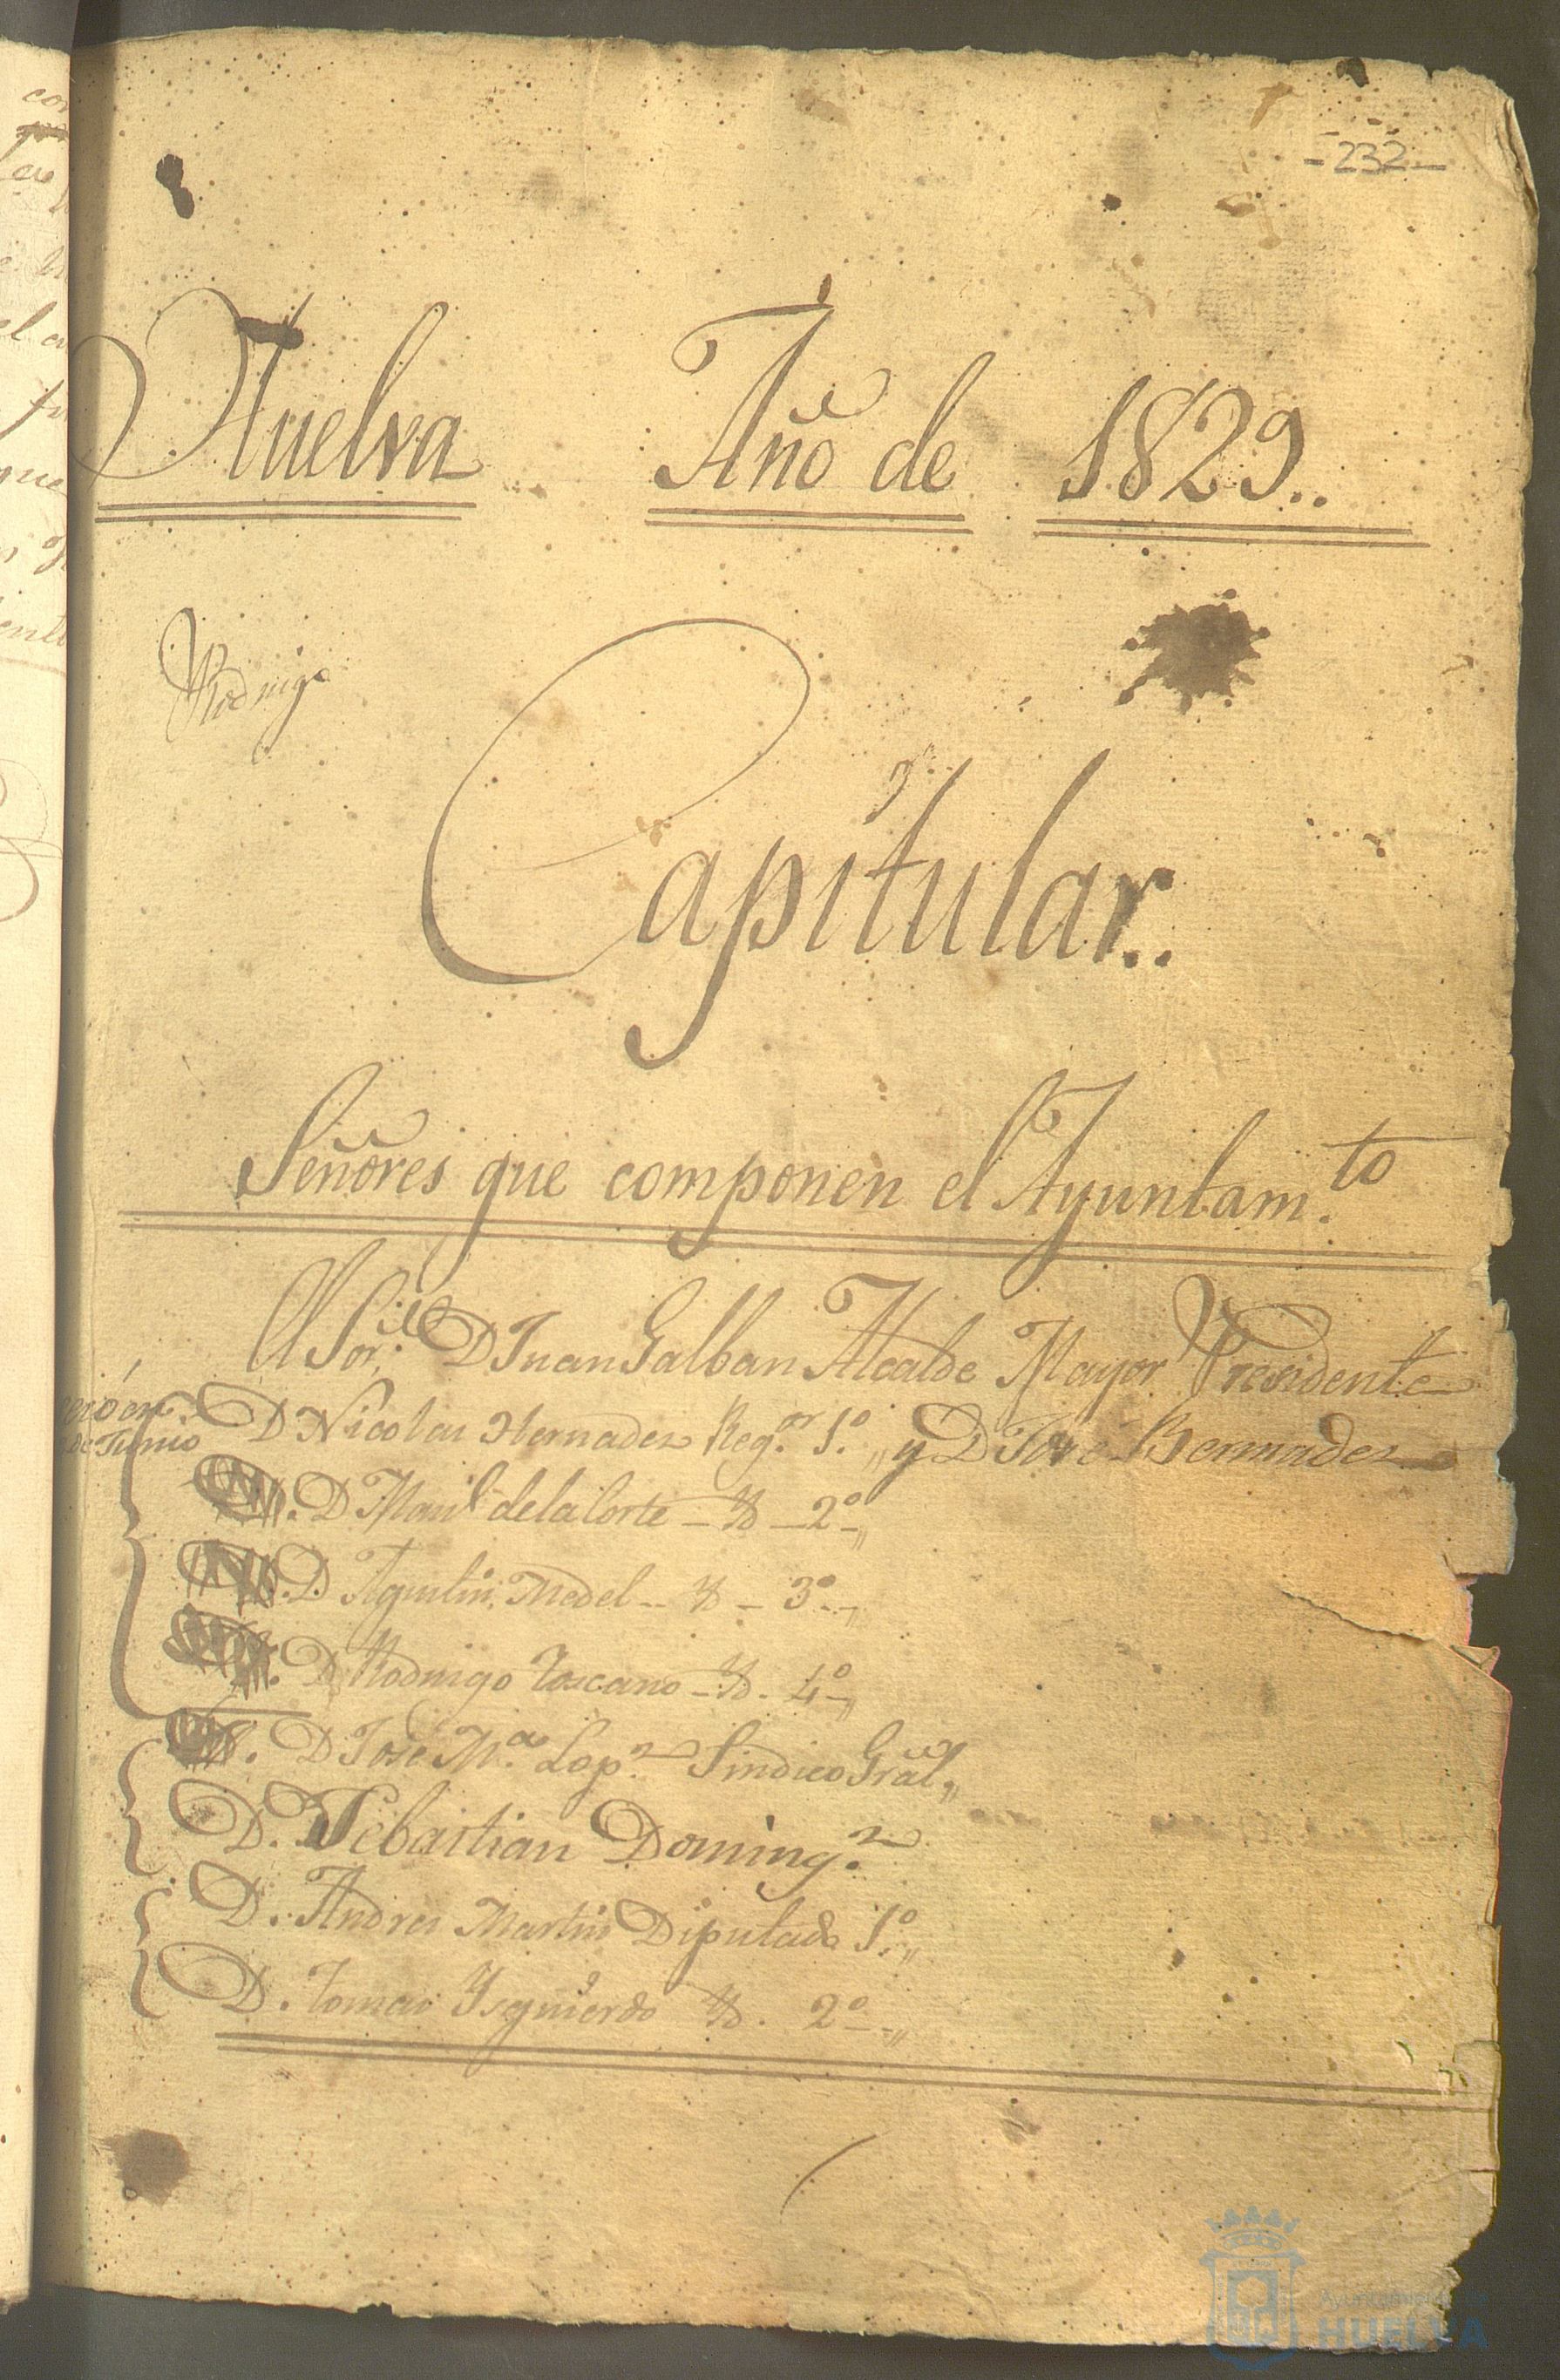 -232-
Huelva Año de 1829..
Rodrigo
Capitular..
Señores que componen el Ayuntam.to
El Sor. D Juan Galban Alcalde Mayor Presidente
D Nicolas Hernadez Reg.or 1º.,, y D Jose Bermudez
de Junio
D Manl. de la Corte - Yd - 2º -,,
D Agustin Medel - Yd - 3º -,,
D Rodrigo Toscano - Yd. 4º -,,
D Jose M.a Lop.z Sindico Gral,,
D. Sebastian Doming.z
D. Andres Martin Diputado 1º.,,
D. Tomas Ysquierdo Yd. 2º -,,
Ayuntamiento de
HUELVA